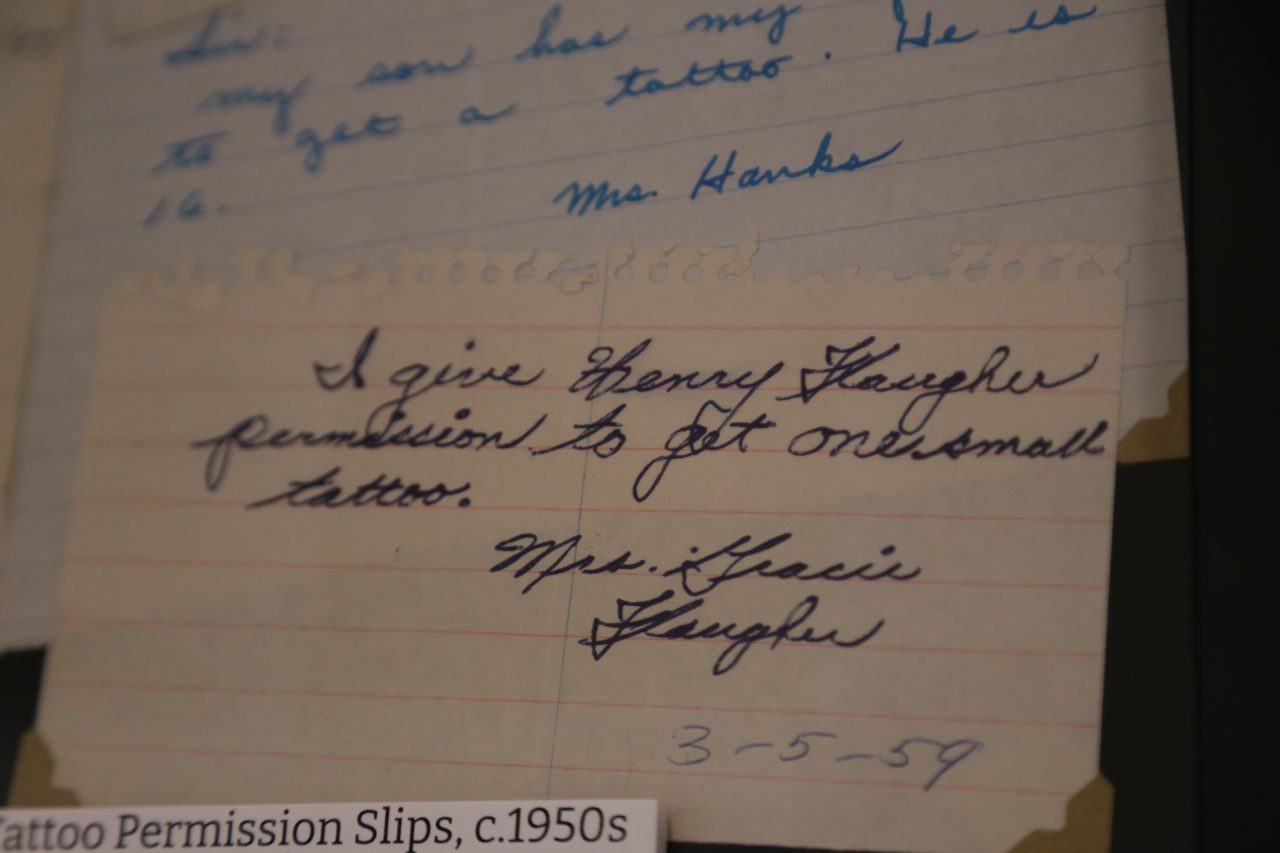 Sir:
my son has my
to get a tattoo. He is
16.
Mrs. Hanks
I give Henry Flaugher
permission to get one small
tattoo.
Mrs. Gracie
Flaugher
3-5-59
attoo Permission Slips, c.1950s